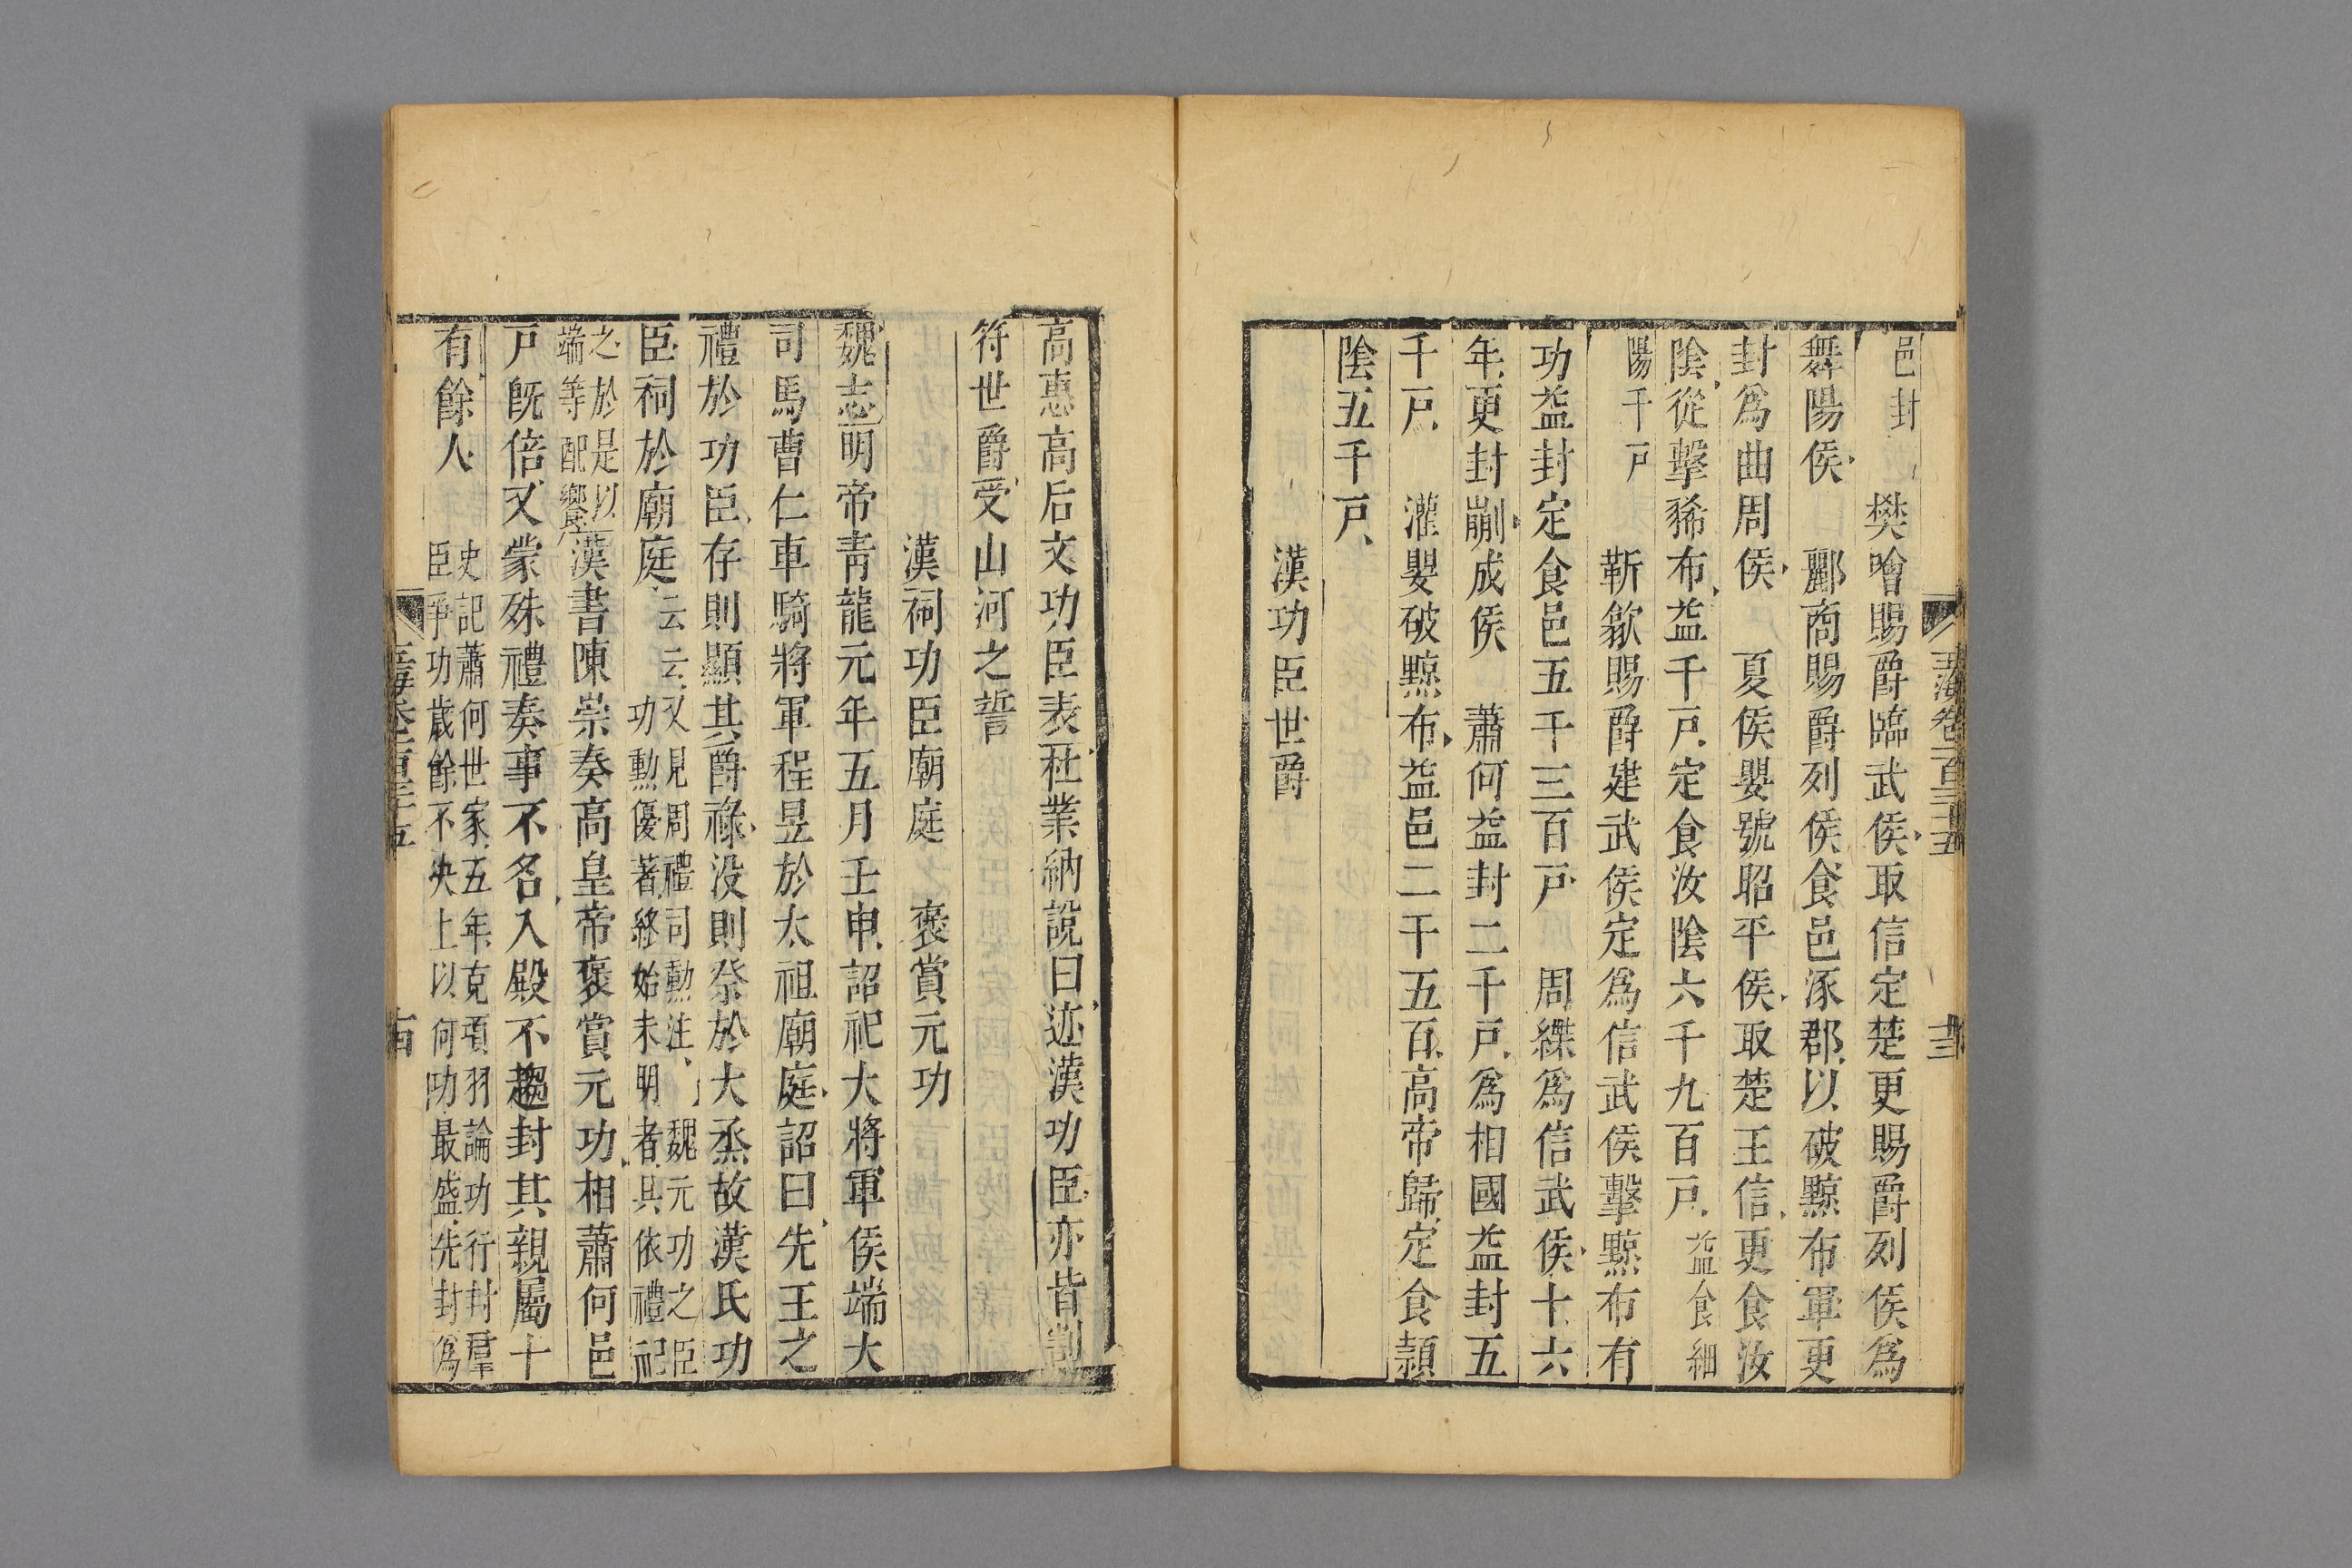 玉海卷一百三十五 十三
邑封 樊噲賜爵臨武侯取信定楚更賜爵列侯爲
舞陽侯 酈商賜爵列侯食邑涿郡以破黥布軍更
封爲曲周侯 夏侯嬰號昭平侯取楚王信更食汝
陰從擊豨布益千戸定食汝陰六千九百戸益食細
陽千戸 靳歙賜爵建武侯定爲信武侯擊黥布有
功益封定食邑五千三百戸 周緤爲信武侯十六
年更封䣙成侯 蕭何益封二千戸爲相國益封五
千戸 灌嬰破黥布益邑二千五百高帝歸定食潁
陰五千戸
漢功臣世爵
高惠高后文功臣表杜業納說曰迹漢功臣亦皆割
符世爵受山河之誓
漢祠功臣廟庭 褒賞元功
魏志明帝青龍元年五月壬申詔祀大將軍侯端大
司馬曹仁車騎將軍程昱於太祖廟庭詔曰先王之
禮於功臣存則顯其爵祿沒則祭於大烝故漢氏功
臣祠於廟庭云云又見周禮司勲注 魏元功之臣
功勲優著終始未明者具依禮祀
之於是以
端等配饗漢書陳崇奏高皇帝褒賞元功相蕭何邑
戸旣倍又蒙殊禮奏事不名入殿不趨封其親屬十
有餘人史記蕭何世家五年克項羽論功行封羣
臣爭功歲餘不决上以何功最盛先封爲
玉海卷一百三十五 十四